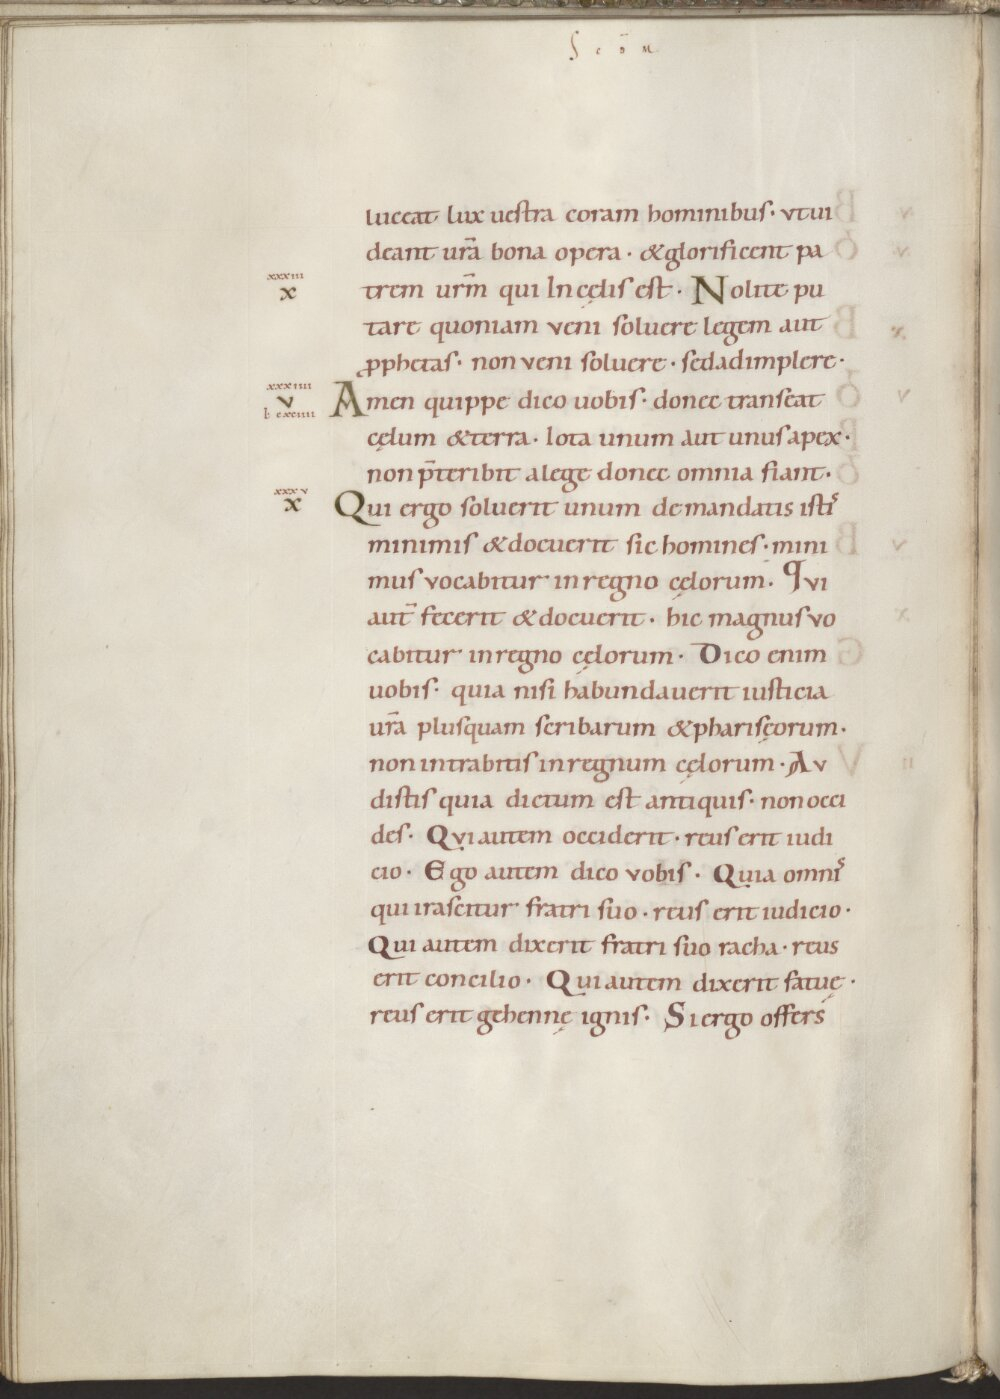 S c̄ō M
luceat lux uestra coram hominibus· vtui
deant ur̄a bona opera· &glorificent pa
xxxiii
x
trem ur̄m qui In cęlis est· Nolite pu
tare quoniam veni soluere legem aut
ꝓphetas· non veni soluere· sed adimplere·
xxxiiii
v
l cxciiii
Amen quippe dico uobis· donec transeat
cęlum &terra· Iota unum aut unus apex·
non p̄teribit a lege donec omnia fiant·
xxxv
x
Qui ergo soluerit unum de mandatis istiˢ
minimis &docuerit sic homines· mini
mus vocabitur in regno cęlorum. Qvi
aut̄ fecerit &docuerit· hic magnus vo
cabitur in regno cęlorum· Dico enim
uobis· quia nisi habundauerit iusticia
ur̄a plusquam scribarum &pharisęorum·
non intrabitis in regnum cęlorum· Av
distis quia dictum est antiquis· non occi
des· Qvi autem occiderit· reus erit iudi
cio· Ego autem dico vobis· Quia omniˢ
qui irascitur fratri suo· reus erit iudicio·
Qui autem dixerit fratri suo racha· reus
erit concilio· Qui autem dixerit fatuę·
reus erit gehennę ignis· Si ergo offers